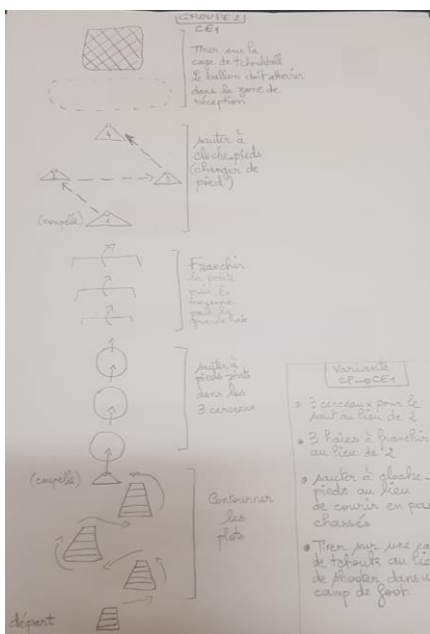 GROUPE 2
CE1
Tirer sur la
cage de tchoukball
Le ballon doit atterrir
dans la zone de
réception
4
sauter à
cloche-pieds
(changer de
pied)
2
3
(coupelle)
1
Franchir
la petite
puis la
moyenne
puis la
grande haie
sauter à
pieds-joints
dans les
3 cerceaux
(coupelle)
Contourner
les
plots
départ
Variante
CP → CE1
• 3 cerceaux pour le
saut au lieu de 2
• 3 haies à franchir
au lieu de 2
• sauter à cloche-
pieds au lieu
de courir en pas
chassés
• Tirer sur une ca
de tchouk au lie
de shooter dans u
camp de foot.